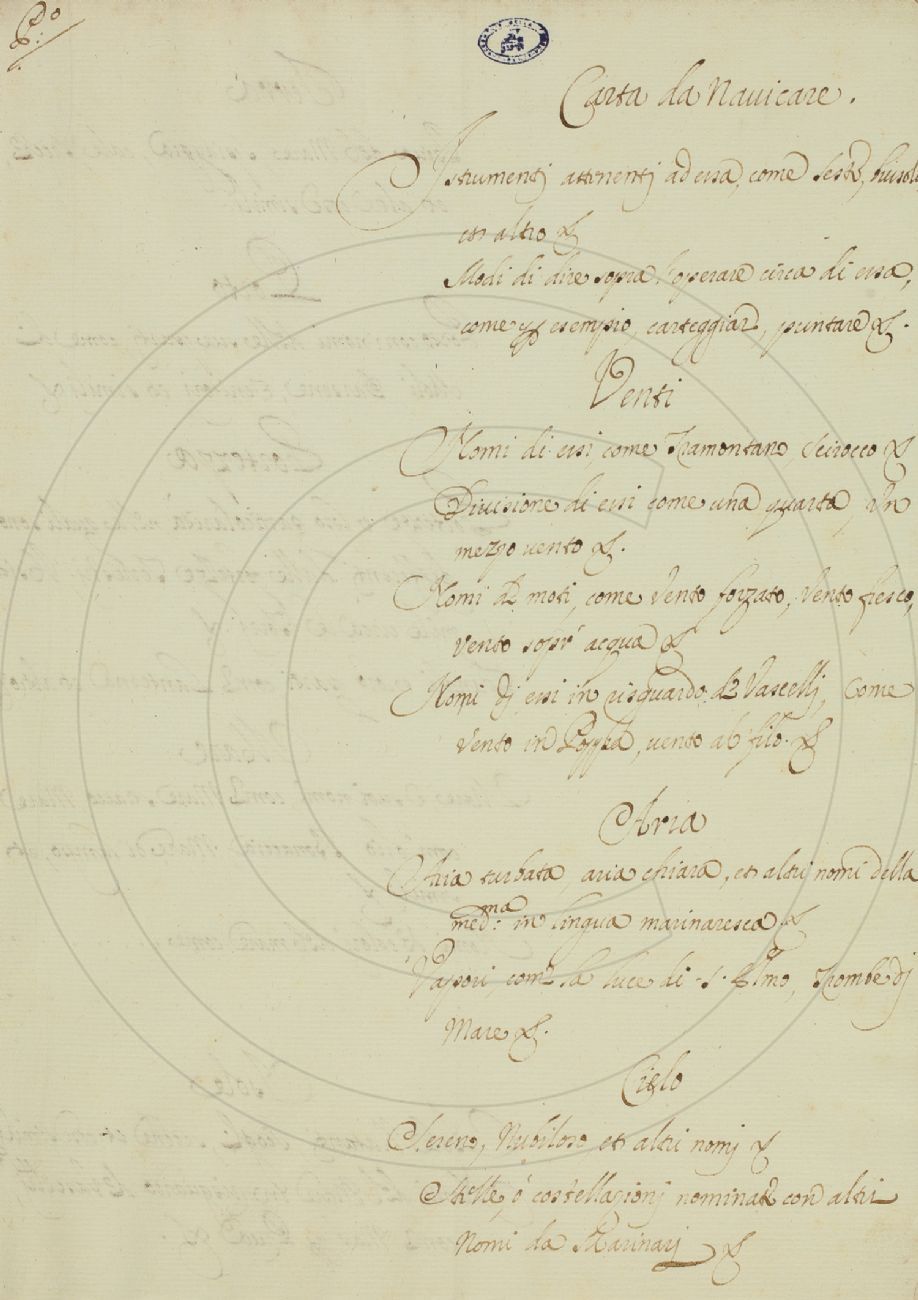 P.º
Carta da Nauicare.
Istrumentj attinentj ad essa, come Seste, bussole
et altro &
Modi di dire sopra l'operare circa di essa,
come p esempio, carteggiare, puntare &.
Venti
Nomi di essi, come Tramontano, Scirocco &
Diuisione di essi come una quarta, Un
mezzo uento &.
Nomi de moti, come Vento forzato, Vento fresco,
Vento sopr' acqua &
Nomi dj essi in risguardo de Vascellj, Come
Vento in Poppa, uento al filo. &
Aria
Aria turbata, aria chiara, et altri nomi della
med:ma in lingua marinaresca &
Vapori, come la luce di S. Elmo, Trombe dj
Mare &.
Cielo
Sereno, Nubiloso, et altri nomj &
Stelle, ò costellazionj nominate con altri
Nomi da Marinarj &